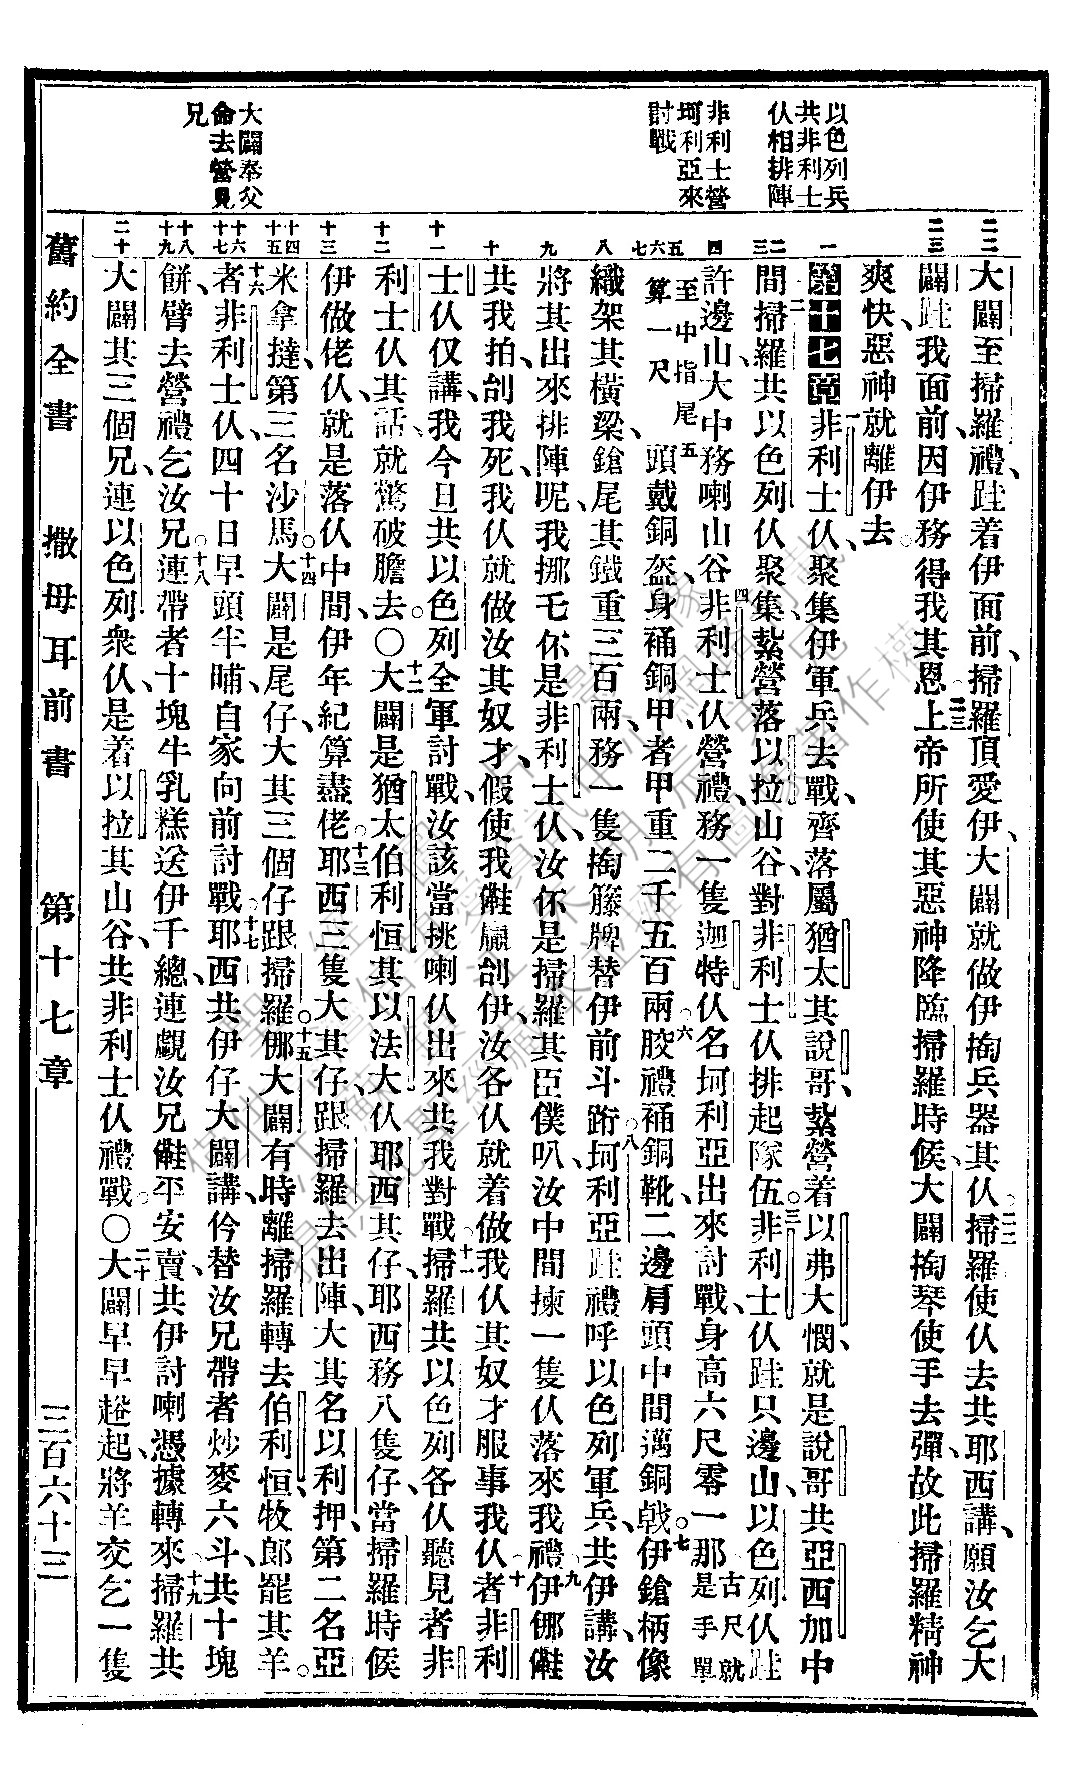 以色列兵
共非利士
伩相排陣
非利士營
坷利亞來
討戰
大闢奉父
命去營見
兄
二二
二三
一
二三
四
五六七
八
九
十
十一
十二
十三
十四十五
十六十七
十八十九
二十
大闢至掃羅禮、跬着伊面前、掃羅頂愛伊、大闢就做伊掏兵器其伩○二二掃羅使伩去共耶西講、願汝乞大
闢跬我面前、因伊務得我其恩○二三上帝所使其惡神降臨掃羅時候、大闢掏琴使手去彈、故此掃羅精神
爽快、惡神就離伊去○
第十七章非利士伩聚集伊軍兵去戰、齊落屬猶太其說哥、紮營着以弗大憫、就是說哥共亞西加中
間○二掃羅共以色列伩聚集、紮營落以拉山谷、對非利士伩排起隊伍○三非利士伩跬只邊山、以色列伩跬
許邊山、大中務喇山谷○四非利士伩營禮、務一隻迦特伩名坷利亞、出來討戰、身高六尺零一那古尺就是手單
至中指尾五算一尺○五頭戴銅盔、身䘼銅甲、者甲重二千五百兩○六腔禮䘼銅靴、二邊肩頭中間邁銅戟○七伊鎗柄像
織架其橫梁、鎗尾其鐵重三百兩、務一隻掏籐牌替伊前斗跀○八坷利亞跬禮呼以色列軍兵、共伊講、汝
將其出來排陣呢、我挪乇伓是非利士伩、汝伓是掃羅其臣僕叭、汝中間揀一隻伩落來我禮○九伊㑚會
共我拍、刣我死、我伩就做汝其奴才、假使我會贏刣伊、汝各伩就着做我伩其奴才服事我伩○十者非利
士伩仅講、我今旦共以色列全軍討戰、汝該當挑喇伩出來共我對戰○十一掃羅共以色列各伩聽見者非
利士伩其話、就驚破膽去○○十二大闢是猶太伯利恒其以法大伩耶西其仔、耶西務八隻仔、當掃羅時候
伊做佬伩、就是落伩中間、伊年紀算盡佬○十三耶西三隻大其仔、跟掃羅去出陣、大其名以利押、第二名亞
米拿撻、第三名沙馬○十四大闢是尾仔、大其三個仔跟掃羅○十五㑚大闢有時離掃羅轉去伯利恒、牧郎罷其羊○
十六者非利士伩、四十日早頭半晡、自家向前討戰○十七耶西共伊仔大闢講、仱替汝兄帶者炒麥六斗、共十塊
餅、臂去營禮乞汝兄○十八連帶者十塊牛乳糕、送伊千總、連覷汝兄會平安賣、共伊討喇憑據轉來○十九掃羅共
大闢其三個兄、連以色列衆伩、是着以拉其山谷、共非利士伩禮戰○○二十大闢早早趖起、將羊交乞一隻
舊約全書　撒母耳前書　第十七章　三百六十三